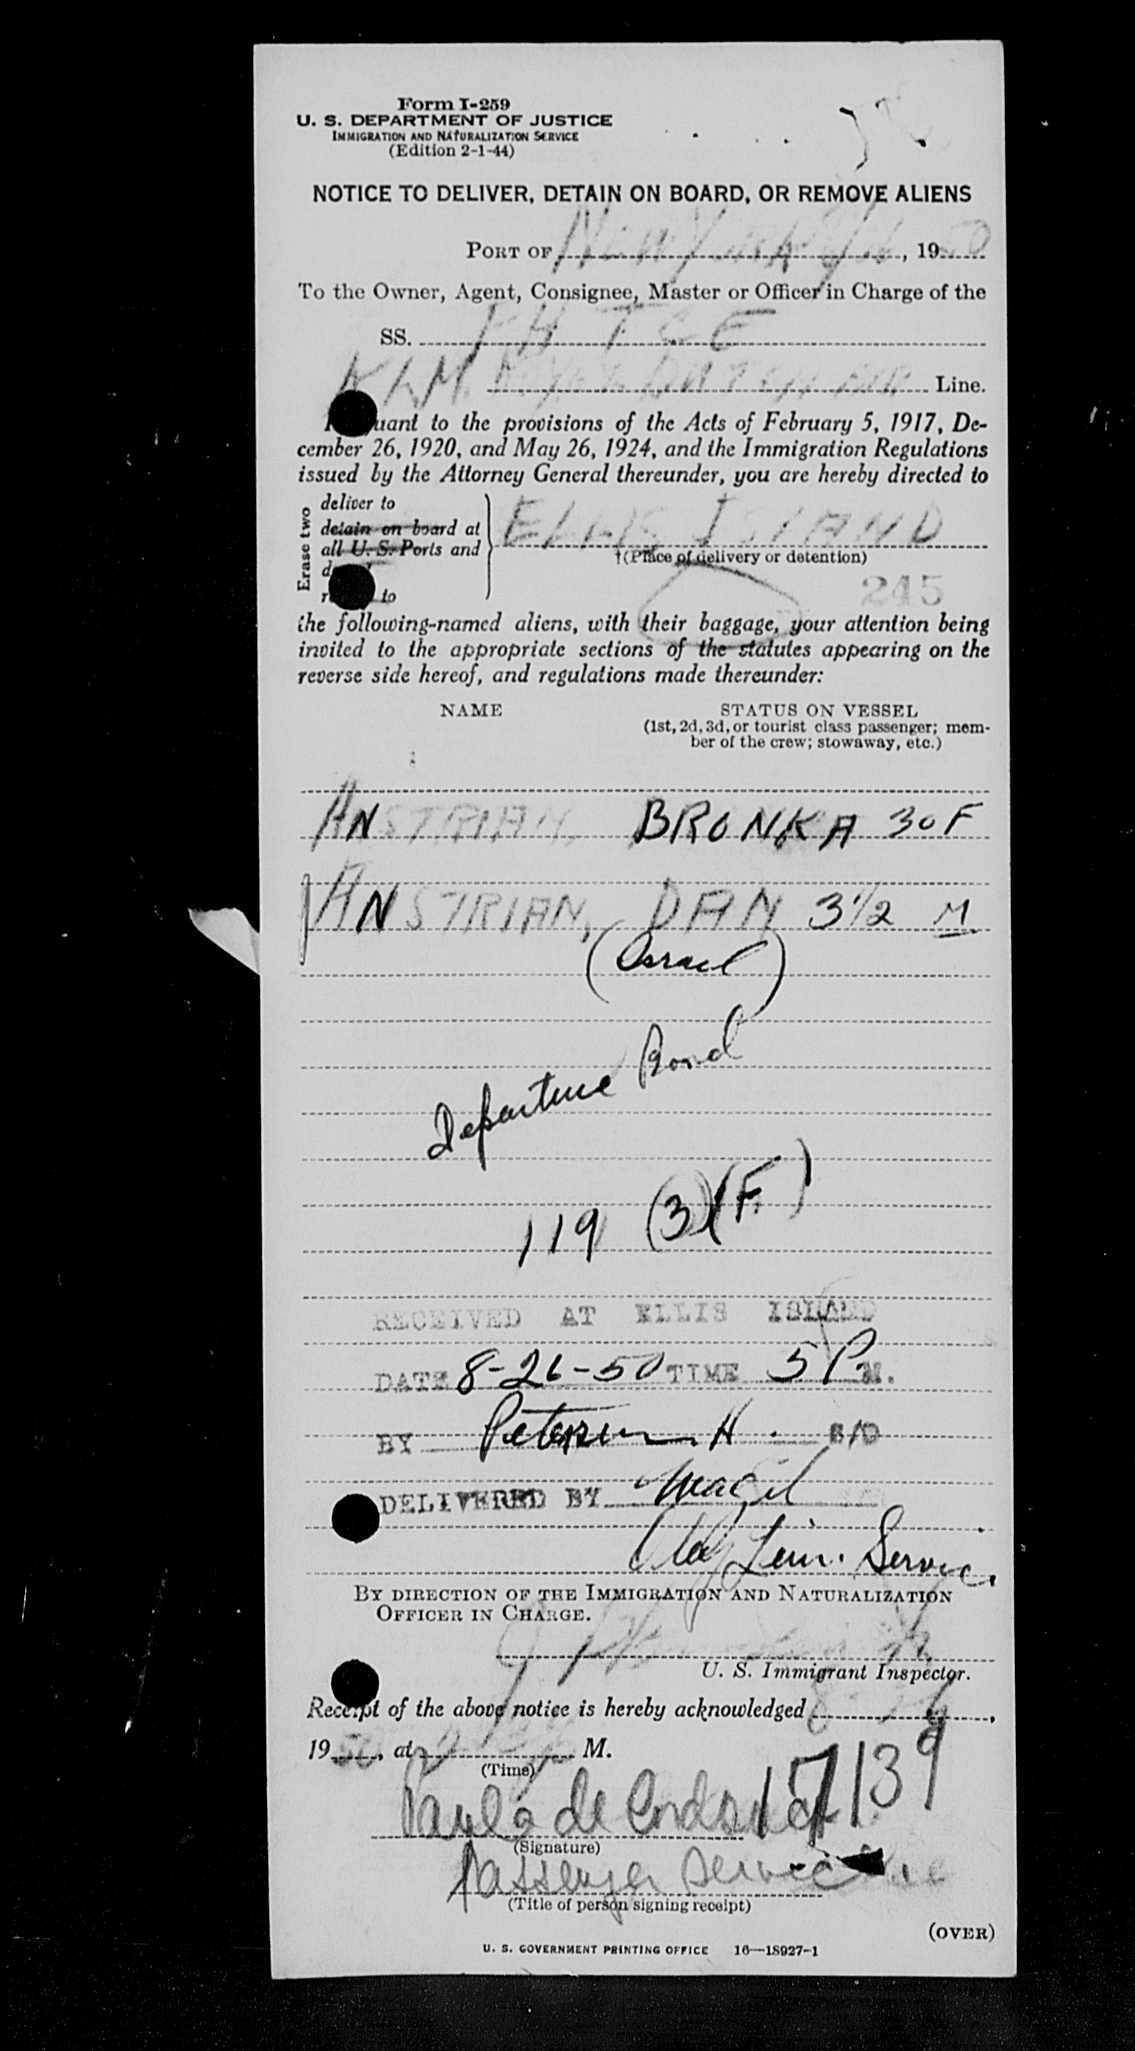 Form I-259
U. S. DEPARTMENT OF JUSTICE
IMMIGRATION AND NATURALIZATION SERVICE
(Edition 2-1-44)
NOTICE TO DELIVER, DETAIN ON BOARD, OR REMOVE ALIENS
PORT OF New York 8/26, 1950
To the Owner, Agent, Consignee, Master or Officer in Charge of the
SS. PH TCE
KLM Royal Dutch Air Line.
Pursuant to the provisions of the Acts of February 5, 1917, De-
cember 26, 1920, and May 26, 1924, and the Immigration Regulations
issued by the Attorney General thereunder, you are hereby directed to
Erase two
deliver to
detain on board at
all U. S. Ports and
to
ELLIS ISLAND
†(Place of delivery or detention)
245
the following-named aliens, with their baggage, your attention being
invited to the appropriate sections of the statutes appearing on the
reverse side hereof, and regulations made thereunder:
NAME STATUS ON VESSEL
(1st, 2d, 3d, or tourist class passenger; mem-
ber of the crew; stowaway, etc.)
ANSTRIAN, BRONKA 30 F
ANSTRIAN, DAN 3 1/2 M
(Israel)
Departure Bond
119 (3) (F.)
RECEIVED AT ELLIS ISLAND
DATE 8-26-50 TIME 5 P M.
BY Peterson H. S/O
DELIVERED BY Magil
Serv.
BY DIRECTION OF THE IMMIGRATION AND NATURALIZATION
OFFICER IN CHARGE.
U. S. Immigrant Inspector.
Receipt of the above notice is hereby acknowledged 8-26,
1950, at M.
(Time)
17139
Paula de
(Signature)
Passenger Service
(Title of person signing receipt)
(OVER)
U. S. GOVERNMENT PRINTING OFFICE 16—18927-1